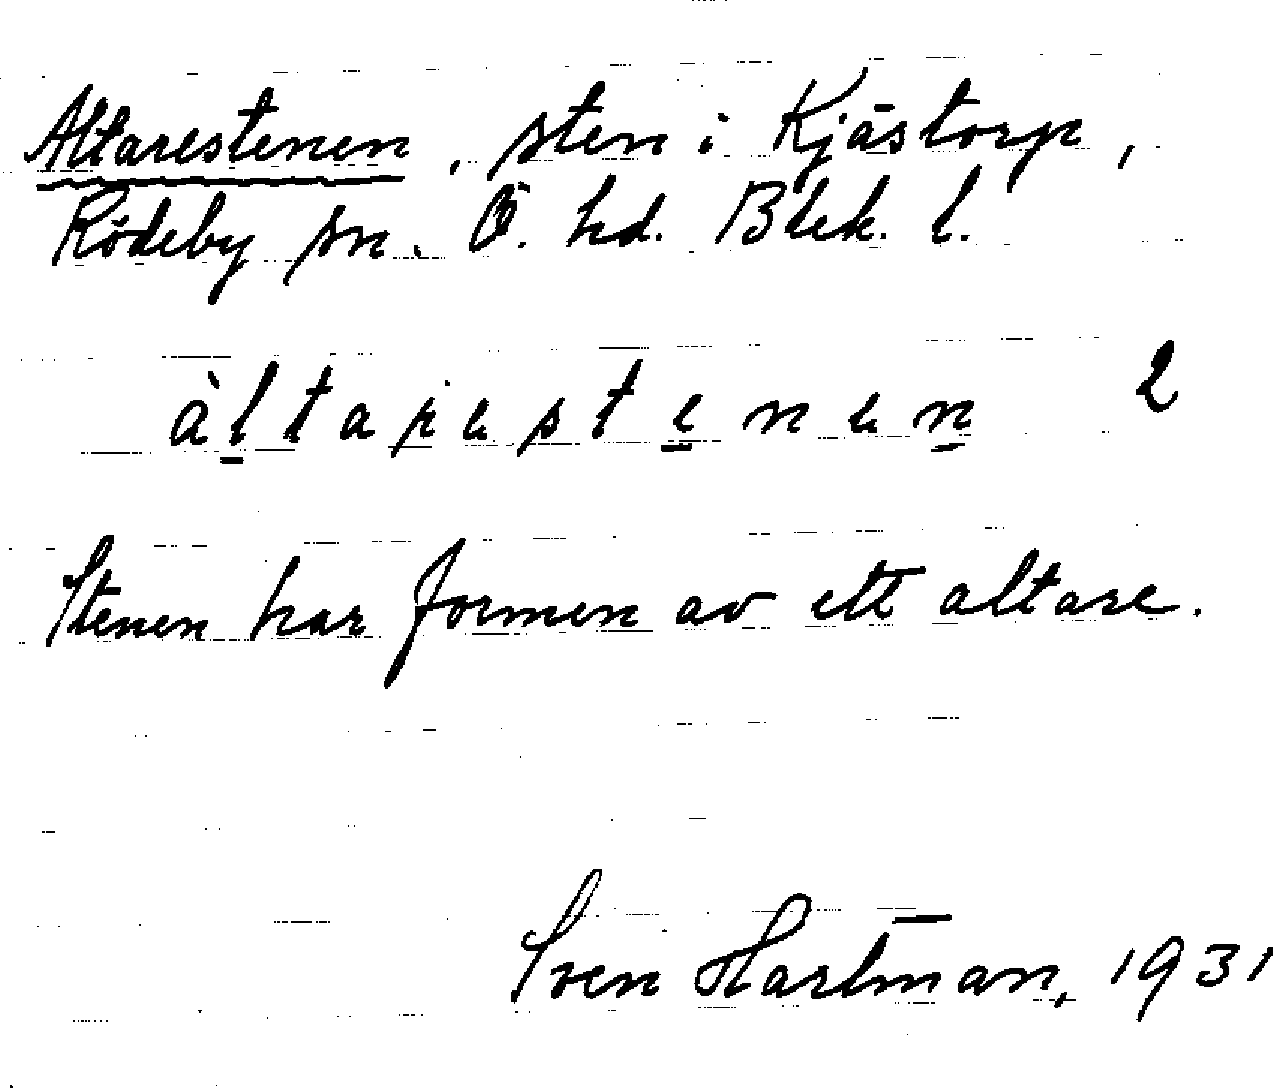 Altarestenen, sten i Kjästorp,
Rödeby sn. Ö. hd. Blek. l.
àltarestenen 2
Stenen har formen av ett altare.
Sven Hartman, 1931